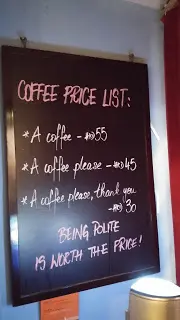 COFFEE PRICE LIST:
* A coffee - HKD 55
* A coffee please - HKD 45
* A coffee please, thank you
- HKD 30
BEING POLITE
IS WORTH THE PRICE!